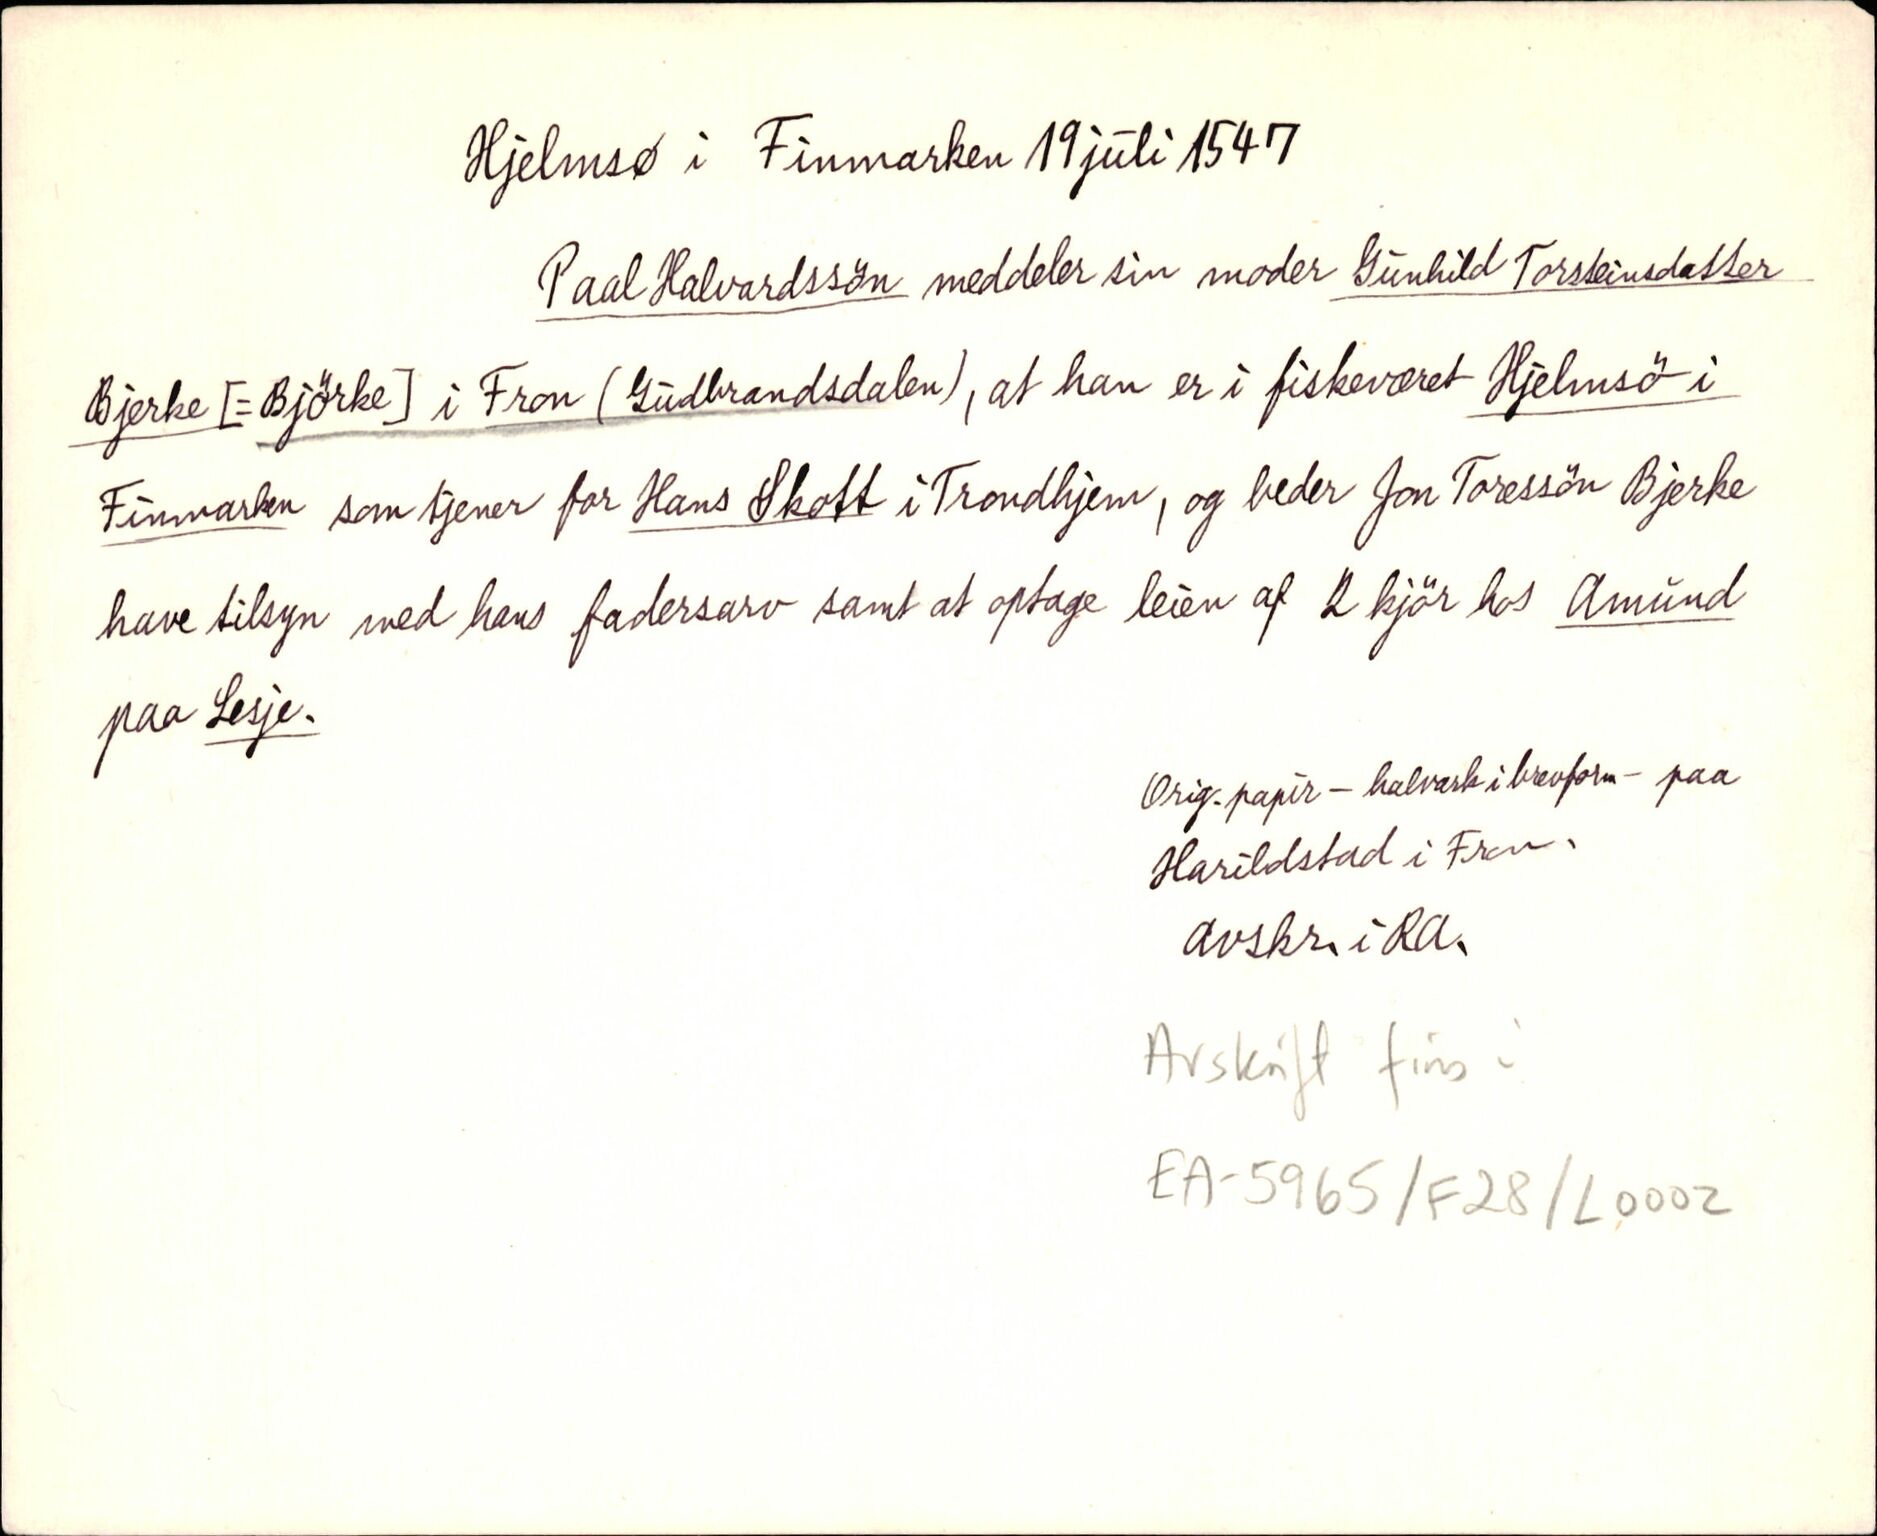 Hjelmsø i Finmarken 19 juli 1547
Paal Halvardssön meddeler sin moder Gunhild Torsteinsdatter
Bjerke [= Björke] i Fron (Gudbrandsdalen), at han er i fiskeværet Hjelmsö i
Finmarken som tjener for Hans Skott i Trondhjem, og beder Jon Toressön Bjerke
have tilsyn med hans fadersarv samt at optage leien af 2 kjör hos Amund
paa Lesje.
Orig. papir – halvark i brevform – paa
Harildstad i Fron.
Avskr. i RA.
Avskrift fins i
EA-5965/F28/L0002